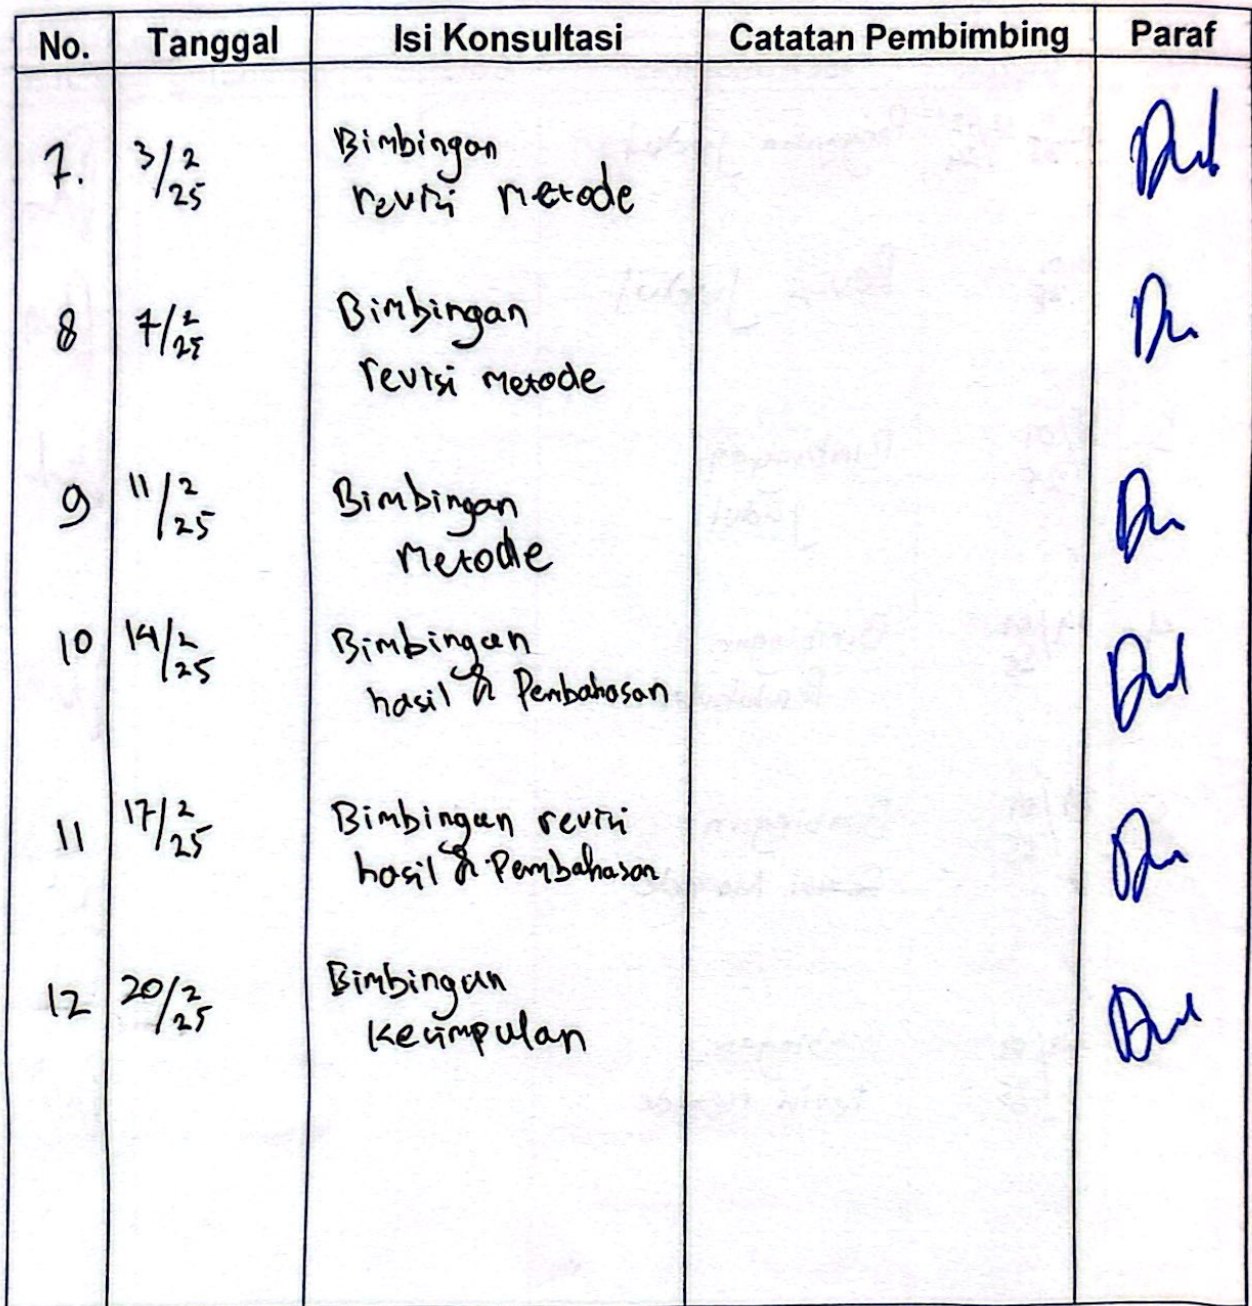 No. Tanggal Isi Konsultasi Catatan Pembimbing Paraf
7. 3/2/25 Bimbingan
revisi metode
8 7/2/25 Bimbingan
revisi metode
9 11/2/25 Bimbingan
Metode
10 14/2/25 Bimbingan
hasil & Pembahasan
11 17/2/25 Bimbingan revisi
hasil & Pembahasan
12 20/2/25 Bimbingan
Kesimpulan